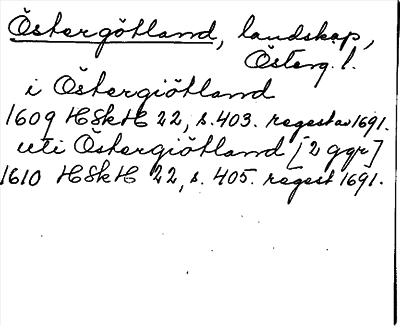 Östergötland, landskap,
Österg. l.
i Östergiötland
1609 HSkH 22, s. 403. regest av 1691.
uti Östergiötland [2 ggr]
1610 HSkH 22, s. 405. regest 1691.